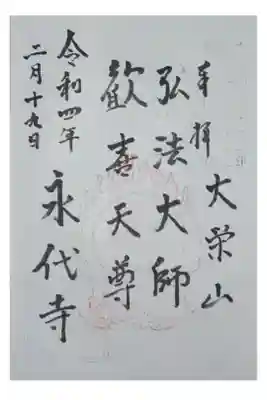 奉拝 大栄山
弘法大師
歓喜天尊
永代寺
令和四年
二月十九日